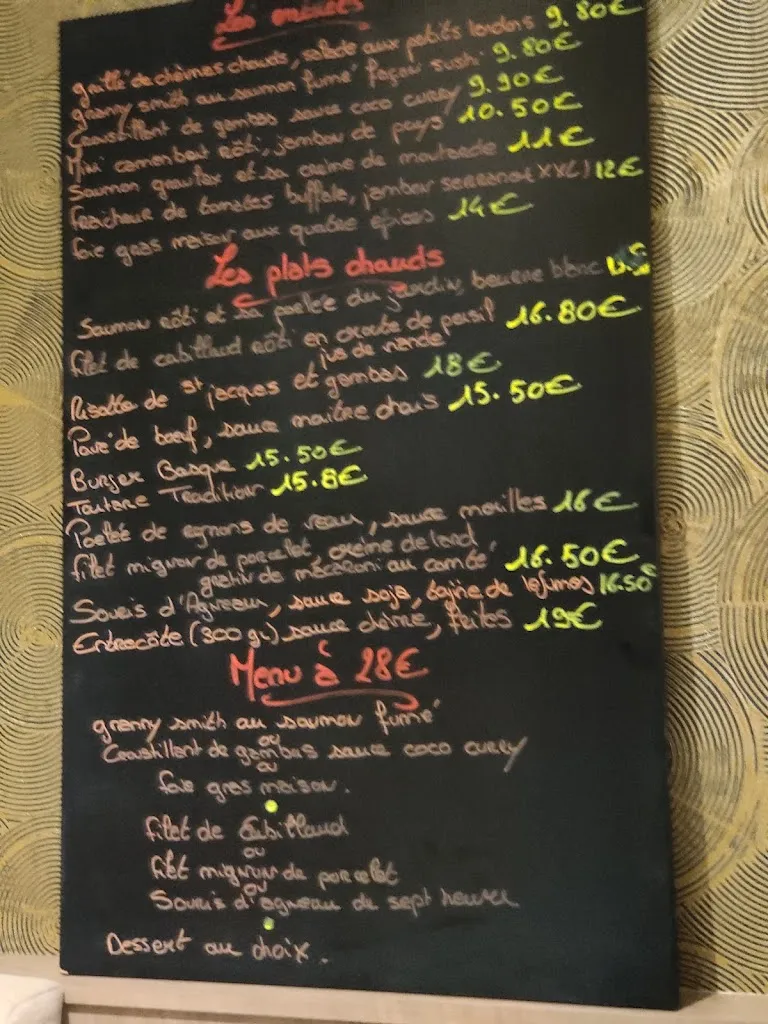 Les entrées
grillé de chèvres chauds, salade aux petits lardons 9.80€
granny smith au saumon fumé façon sushi 9.80€
Croustillant de gambas sauce coco curry 9.90€
Mini camembert rôti, jambon de pays 10.50€
Saumon gravlax et sa crème de moutarde 11€
fraicheur de tomates buffala, jambon serrano (XXL) 12€
foie gras maison aux quatre épices 14€
Les plats chauds
Saumon rôti et sa poelée du jardin, beurre blanc
filet de cabillaud rôti en croute de persil 16.80€
jus de viande
Risotto de st jacques et gambas 18€
Pavé de boeuf, sauce maitre d'hôtel 15.50€
Burger Basque 15.50€
Tartare Tradition 15.8€
Poelée de rognons de veau, sauce morilles 16€
filet mignon de porcelet, crème de lard,
gratin de macaroni au comté 16.50€
Souris d'Agneau, sauce soja, tajine de légumes 16.50€
Entrecôte (300 gr) sauce chèvre, frites 19€
Menu à 28€
granny smith au saumon fumé
ou
Croustillant de gambas sauce coco curry
ou
foie gras maison.
filet de Cabillaud
ou
filet mignon de porcelet
ou
Souris d'agneau de sept heures
Dessert au choix.